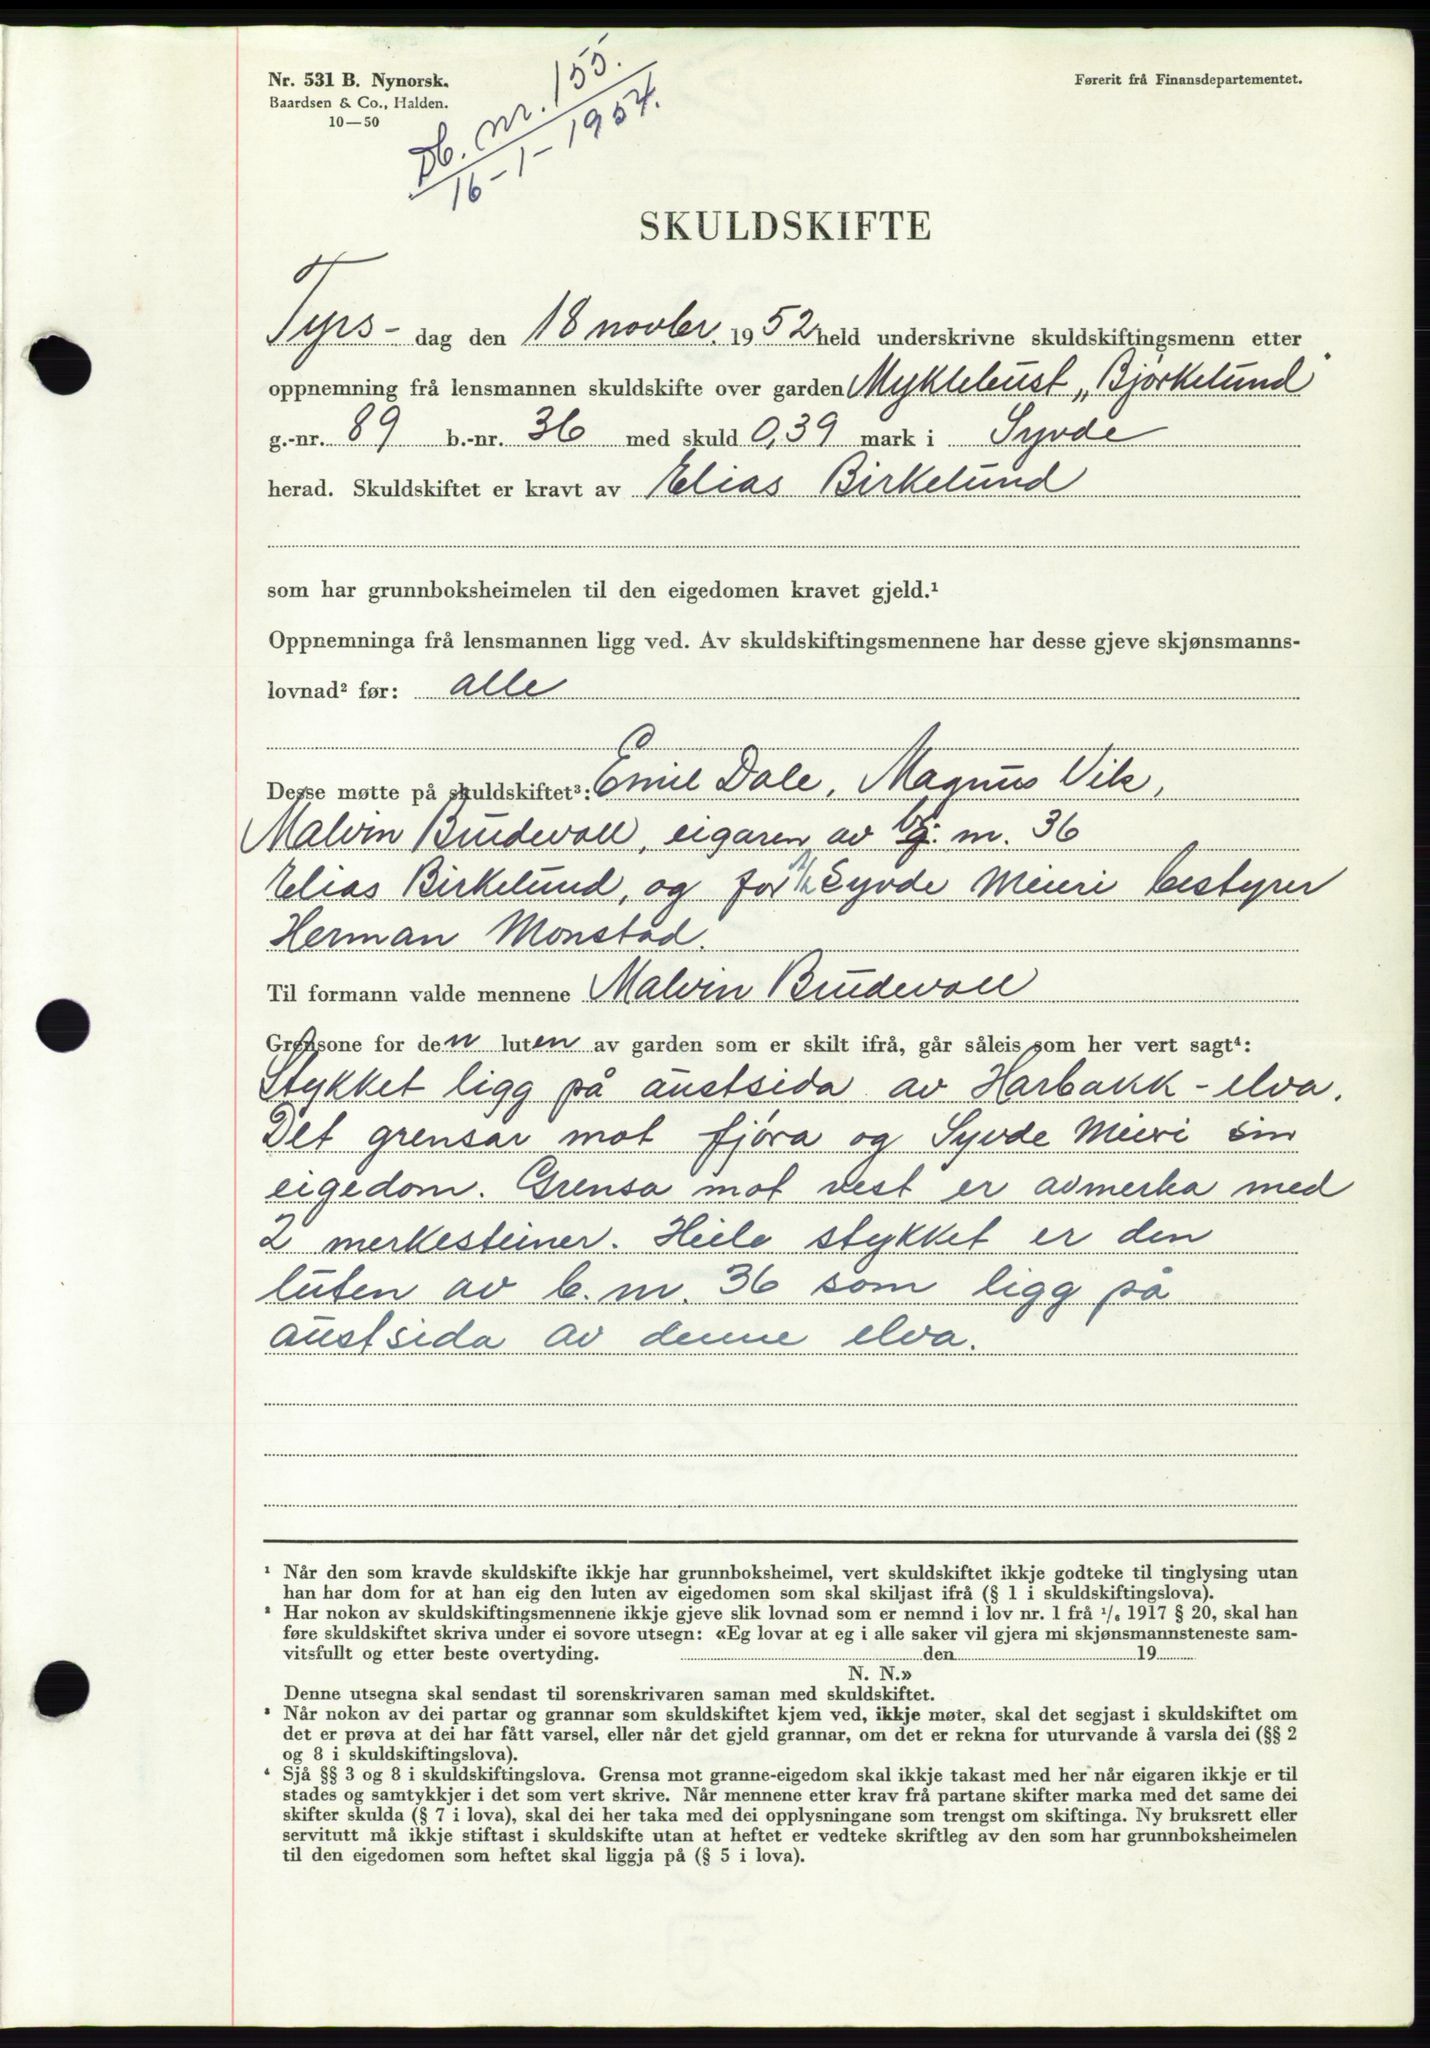 Nr. 531 B. Nynorsk.
Baardsen & Co., Halden.
10—50
Førerit frå Finansdepartementet.
Db. nr. 155.
16-1-1954.
SKULDSKIFTE
Tyrs- dag den 18 novbr. 1952 held underskrivne skuldskiftingsmenn etter
oppnemning frå lensmannen skuldskifte over garden Myklebust „Bjørkelund"
g.-nr. 89 b.-nr. 36 med skuld 0,39 mark i Syvde
herad. Skuldskiftet er kravt av Elias Birkelund
som har grunnboksheimelen til den eigedomen kravet gjeld.¹
Oppnemninga frå lensmannen ligg ved. Av skuldskiftingsmennene har desse gjeve skjønsmanns-
lovnad² før: alle
Desse møtte på skuldskiftet³: Emil Dale, Magnus Vik,
Malvin Brudevoll, eigaren av b. nr. 36
Elias Birkelund, og for Syvde Meieri bestyrer
Herman Monstad.
Til formann valde mennene Malvin Brudevoll
Grensone for den luten av garden som er skilt ifrå, går såleis som her vert sagt⁴:
Stykket ligg på austsida av Harbakk-elva.
Det grensar mot fjøra og Syvde Meieri sin
eigedom. Grensa mot vest er avmerka med
2 merkesteiner. Heile stykket er den
luten av b. nr. 36 som ligg på
austsida av denne elva.
¹ Når den som kravde skuldskifte ikkje har grunnboksheimel, vert skuldskiftet ikkje godteke til tinglysing utan
han har dom for at han eig den luten av eigedomen som skal skiljast ifrå (§ 1 i skuldskiftingslova).
² Har nokon av skuldskiftingsmennene ikkje gjeve slik lovnad som er nemnd i lov nr. 1 frå ¹/₆ 1917 § 20, skal han
føre skuldskiftet skriva under ei sovore utsegn: «Eg lovar at eg i alle saker vil gjera mi skjønsmannsteneste sam-
vitsfullt og etter beste overtyding. den 19
N. N.»
Denne utsegna skal sendast til sorenskrivaren saman med skuldskiftet.
³ Når nokon av dei partar og grannar som skuldskiftet kjem ved, ikkje møter, skal det segjast i skuldskiftet om
det er prøva at dei har fått varsel, eller når det gjeld grannar, om det er rekna for uturvande å varsla dei (§§ 2
og 8 i skuldskiftingslova).
⁴ Sjå §§ 3 og 8 i skuldskiftingslova. Grensa mot granne-eigedom skal ikkje takast med her når eigaren ikkje er til
stades og samtykkjer i det som vert skrive. Når mennene etter krav frå partane skifter marka med det same dei
skifter skulda (§ 7 i lova), skal dei her taka med dei opplysningane som trengst om skiftinga. Ny bruksrett eller
servitutt må ikkje stiftast i skuldskifte utan at heftet er vedteke skriftleg av den som har grunnboksheimelen
til den eigedomen som heftet skal liggja på (§ 5 i lova).